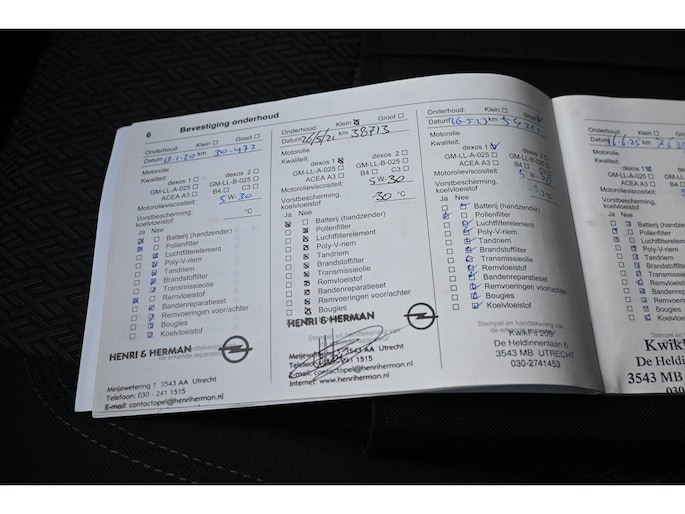 6 Bevestiging onderhoud
Onderhoud: Klein Groot
km 30.473
Motorolie
Kwaliteit: dexos 1 dexos 2
GM-LL-A-025 GM-LL-B-025
ACEA A3 B4 C3
Motorolieviscositeit: 5W-30
Vorstbescherming,
koelvloeistof °C
Ja Nee
Batterij (handzender)
Pollenfilter
Luchtfilterelement
Poly-V-riem
Tandriem
Brandstoffilter
Transmissieolie
Remvloeistof
Bandenreparatieset
Remvoeringen voor/achter
Bougies
Koelvloeistof
HENRI & HERMAN
de erkende reparateur
Meijewetering 1 3543 AA Utrecht
Telefoon: 030 - 241 1515
E-mail: contactopel@henriherman.nl
Onderhoud: Klein Groot
Datum 26/5/21 km 38713
Motorolie
Kwaliteit: dexos 1 dexos 2
GM-LL-A-025 GM-LL-B-025
ACEA A3 B4 C3
Motorolieviscositeit: 5W-30
Vorstbescherming,
koelvloeistof -30 °C
Ja Nee
Batterij (handzender)
Pollenfilter
Luchtfilterelement
Poly-V-riem
Tandriem
Brandstoffilter
Transmissieolie
Remvloeistof
Bandenreparatieset
Remvoeringen voor/achter
Bougies
Koelvloeistof
HENRI & HERMAN
Stempel en handtekening van
1515
E-mail: contactopel@henriherman.nl
Internet: www.henriherman.nl
Onderhoud: Klein Groot
Datum km
Motorolie
Kwaliteit: dexos 1 dexos 2
GM-LL-A-025 GM-LL-B-025
ACEA A3 B4 C3
Motorolieviscositeit: 5W
Vorstbescherming,
koelvloeistof °C
Ja Nee
Batterij (handzender)
Pollenfilter
Luchtfilterelement
Poly-V-riem
Tandriem
Brandstoffilter
Transmissieolie
Remvloeistof
Bandenreparatieset
Remvoeringen voor/achter
Bougies
Koelvloeistof
Stempel en handtekening van
KwikFit 209
De Heldinnenlaan 6
3543 MB UTRECHT
030-2741453
Onderhoud: Klein
km
Motorolie
Kwaliteit: dexos 1
GM-LL-A-025
ACEA A3
Motorolieviscositeit:
Vorstbescherming,
koelvloeistof
Ja Nee
Batterij (handz
Pollenfilter
Luchtfilterelement
Poly-V-riem
Tandriem
Brandstoffilter
Transmissie
Remvloeistof
Bandenrepar
Remvoeringe
Bougies
Koelvloeistof
Stempel en
Kwikf
De Heldin
3543 MB
030